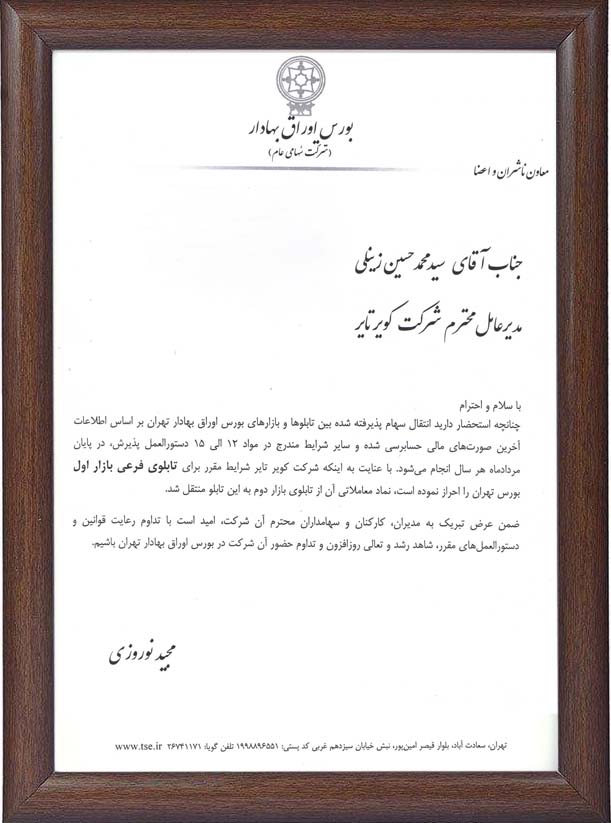 بورس اوراق بهادار
(شرکت سهامی عام)
معاون ناشران و اعضا
جناب آقای سید محمد حسین زینلی
مدیر عامل محترم شرکت کویر تایر
با سلام و احترام
چنانچه استحضار دارید انتقال سهام پذیرفته شده بین تابلوها و بازارهای بورس اوراق بهادار تهران بر اساس اطلاعات
آخرین صورت‌های مالی حسابرسی شده و سایر شرایط مندرج در مواد ۱۲ الی ۱۵ دستورالعمل پذیرش، در پایان
مردادماه هر سال انجام می‌شود. با عنایت به اینکه شرکت کویر تایر شرایط مقرر برای تابلوی فرعی بازار اول
بورس تهران را احراز نموده است، نماد معاملاتی آن از تابلوی بازار دوم به این تابلو منتقل شد.
ضمن عرض تبریک به مدیران، کارکنان و سهامداران محترم آن شرکت، امید است با تداوم رعایت قوانین و
دستورالعمل‌های مقرر، شاهد رشد و تعالی روزافزون و تداوم حضور آن شرکت در بورس اوراق بهادار تهران باشیم.
مجید نوروزی
تهران، سعادت آباد، بلوار قیصر امین‌پور، نبش خیابان سیزدهم غربی کد پستی: ۱۹۹۸۸۹۶۵۵۱ تلفن گویا: ۲۶۷۴۱۱۷۱ www.tse.ir